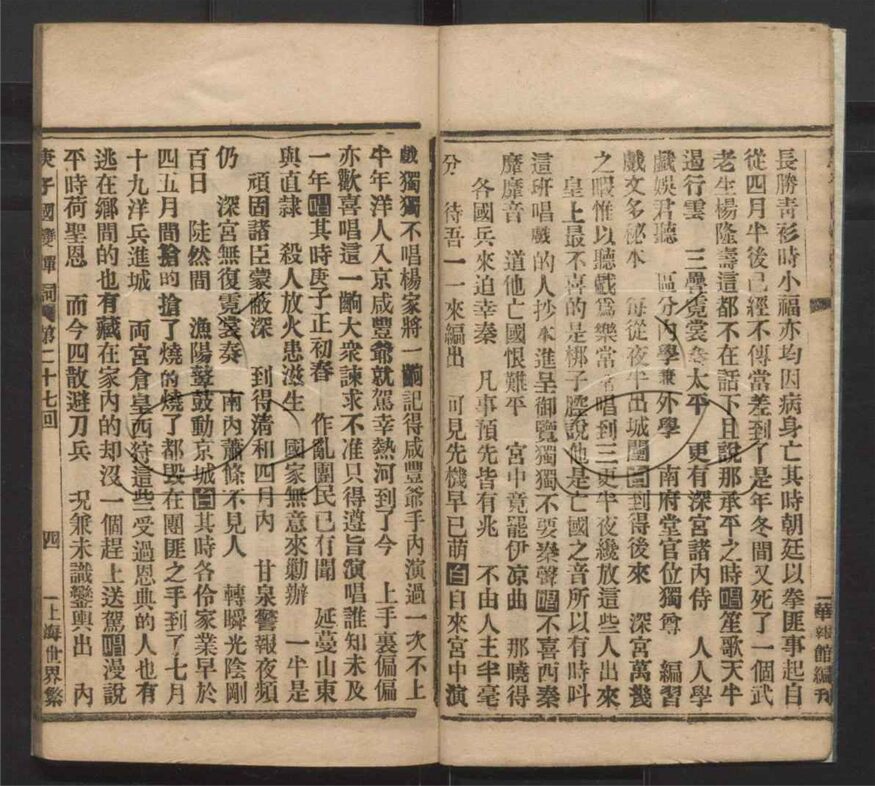 長勝青衫時小福亦均因病身亡其時朝廷以拳匪事起自
從四月半後已經不傳當差到了是年冬間又死了一個武
老生楊隆壽這都不在話下且說那承平之時唱笙歌天半
遏行雲 三疊霓裳奏太平 更有深宮諸內侍 人人學
戲娛君聽 區分內學兼外學 南府堂官位獨尊 編習
戲文多秘本 每從夜半出城闉白到得後來 深宮萬幾
之暇惟以聽戲爲樂當常唱到三更半夜纔放這些人出來
皇上最不喜的是梆子腔說他是亡國之音所以有時呌
這班唱戲的人抄本進呈御覽獨獨不要秦聲唱不喜西秦
靡靡音 道他亡國恨難平 宮中竟罷伊凉曲 那曉得
各國兵來迫幸秦 凡事預先皆有兆 不由人主半毫
分 待吾一一來編出 可見先機早已萌白自來宮中演
華報館編刊
戲獨獨不唱楊家將一齣記得咸豐爺手內演過一次不上
半年洋人入京咸豐爺就駕幸熱河到了今 上手裏偏偏
亦歡喜唱這一齣大衆諫求不准只得遵旨演唱誰知未及
一年唱其時庚子正初春 作亂團民已有聞 延蔓山東
與直隷 殺人放火患滋生 國家無意來勦辦 一半是
頑固諸臣蒙蔽深 到得清和四月內 甘泉警報夜頻
仍 深宮無復霓裳奏 南內蕭條不見人 轉瞬光陰剛
百日 陡然間 漁陽鼙鼓動京城白其時各伶家業早於
四五月間搶的搶了燒的燒了都毀在團匪之手到了七月
十九洋兵進城 兩宮倉皇西狩這些受過恩典的人也有
逃在鄉間的也有藏在家內的却沒一個趕上送駕唱漫說
平時荷聖恩 而今四散避刀兵 况兼未識鑾輿出 內
庚子國變彈詞 第二十七回 四 上海世界繁